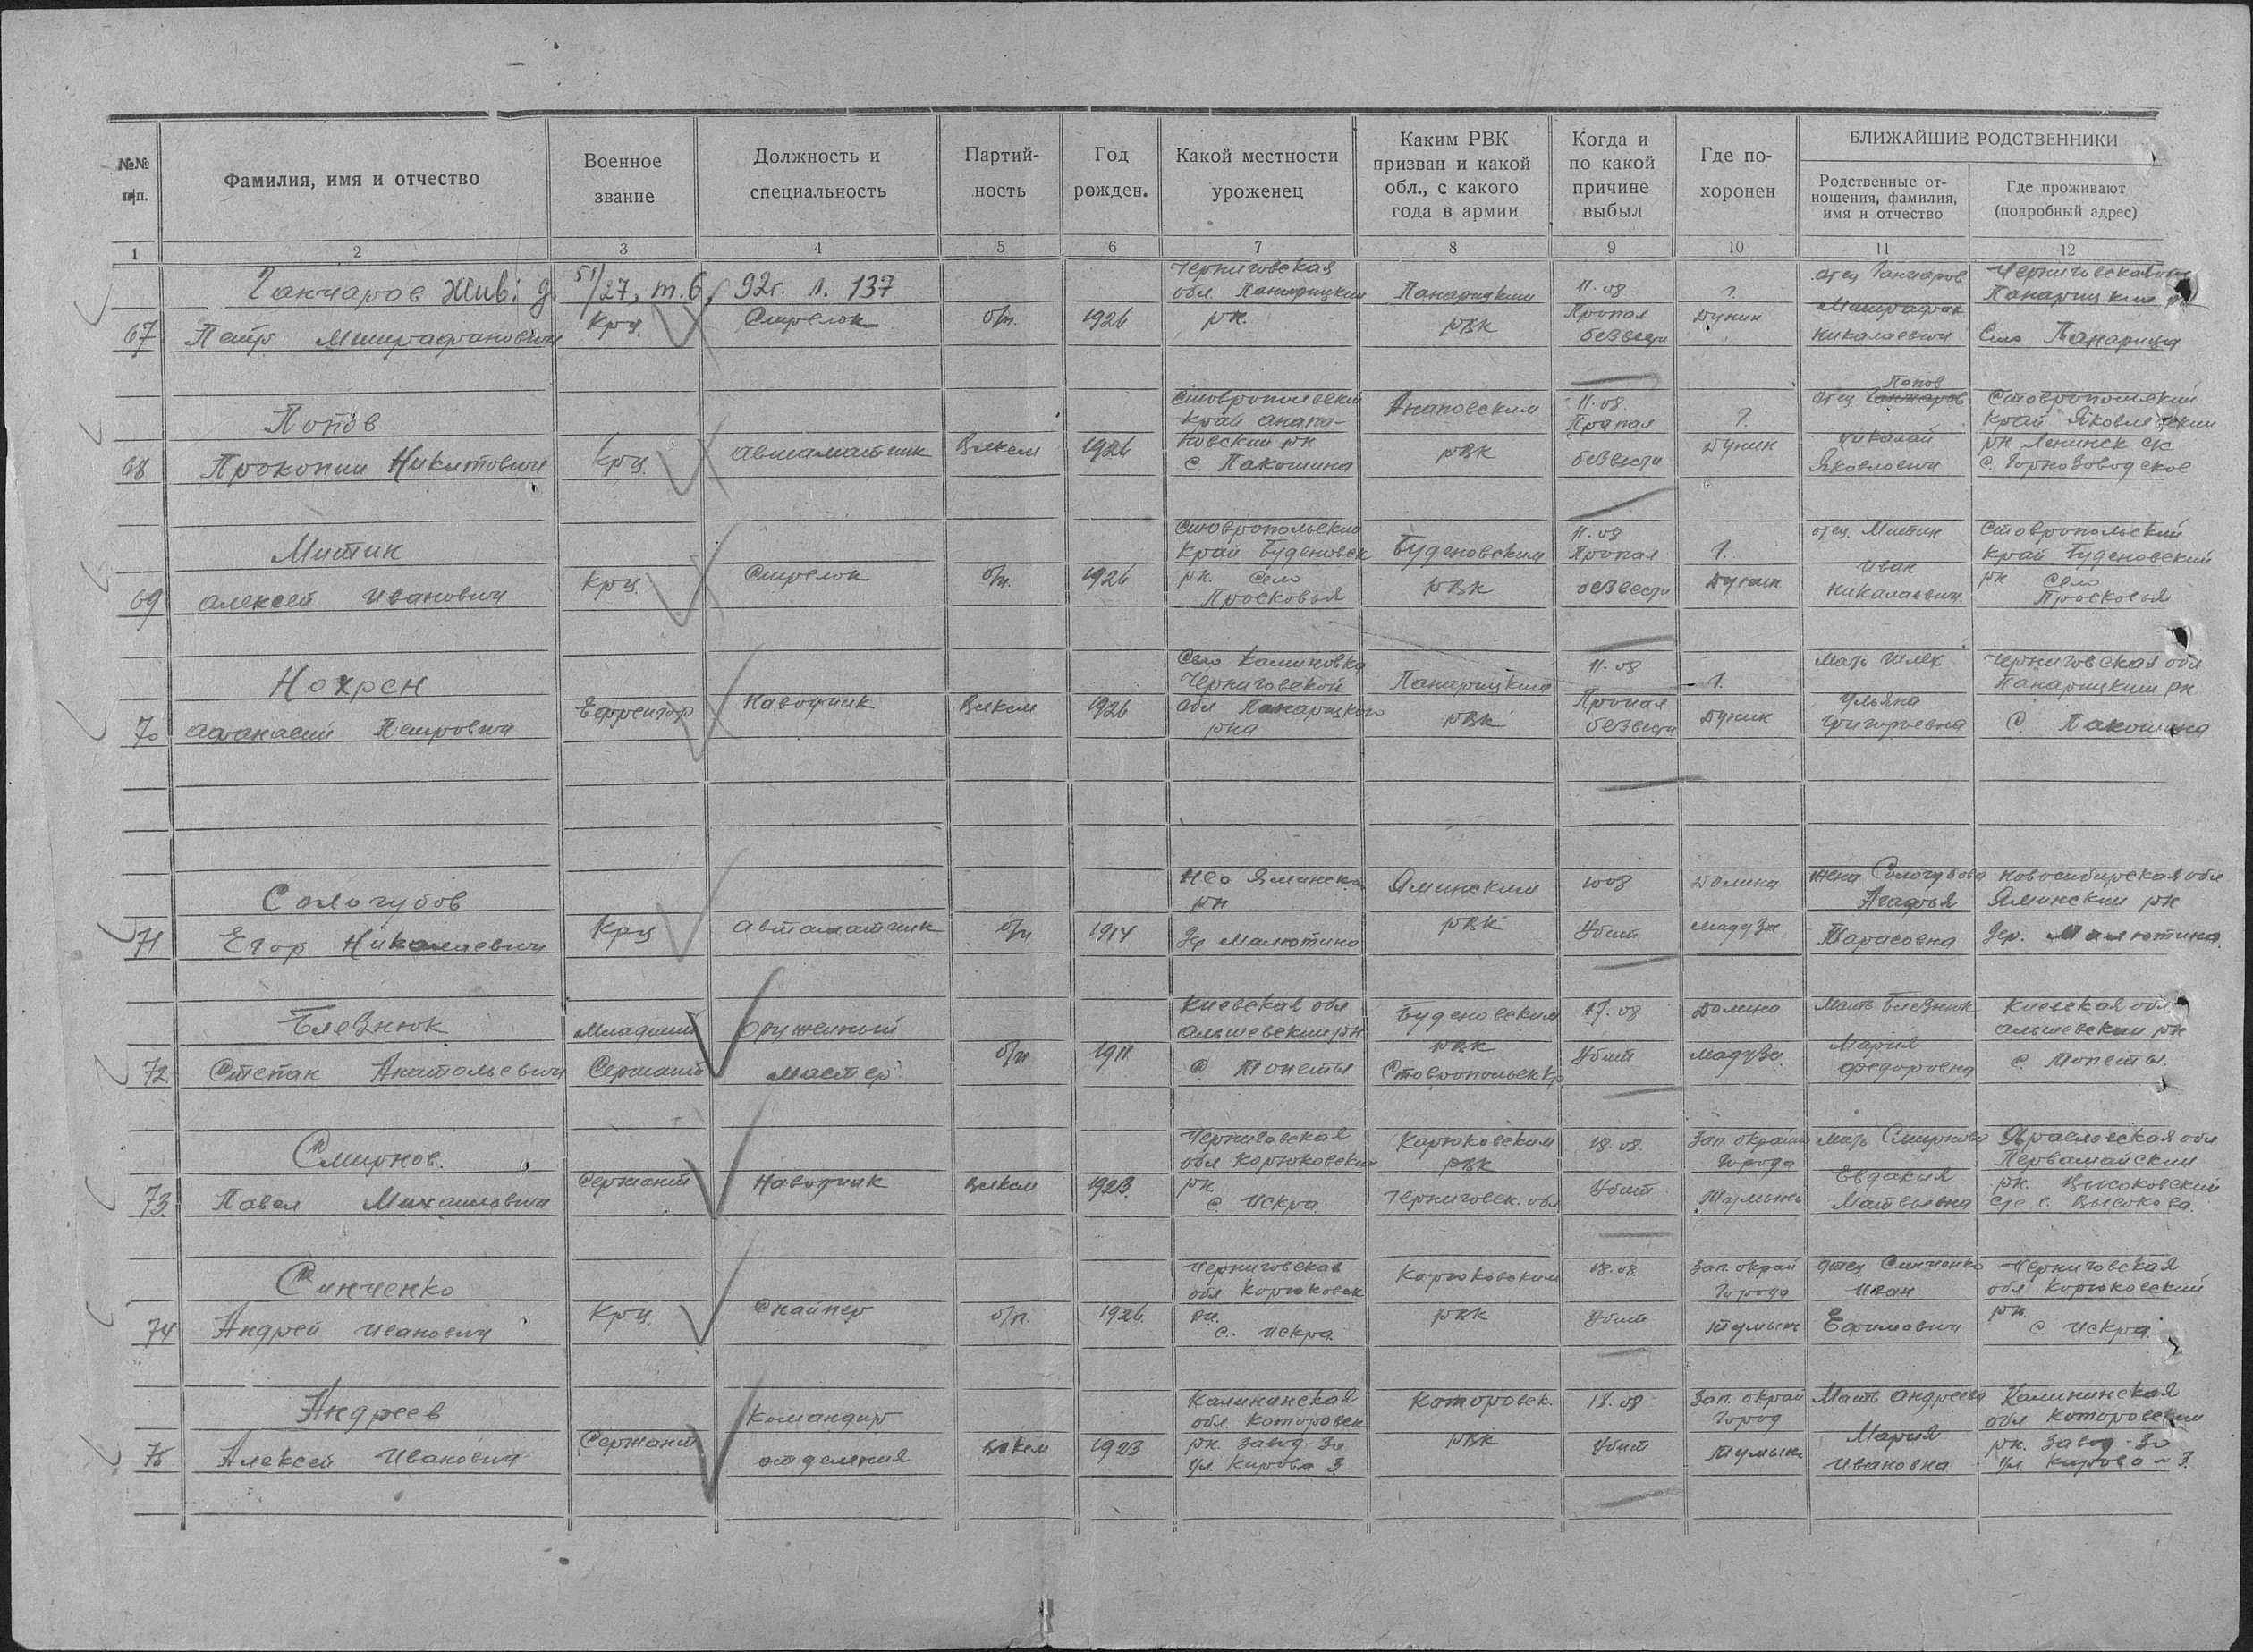 №№ п/п.
Фамилия, имя и отчество
Военное звание
Должность и специальность
Партий-ность
Год рожден.
Какой местности уроженец
Каким РВК призван и какой обл., с какого года в армии
Когда и по какой причине выбыл
Где по-хоронен
БЛИЖАЙШИЕ РОДСТВЕННИКИ
Родственные от-ношения, фамилия, имя и отчество
Где проживают (подробный адрес)
1 2 3 4 5 6 7 8 9 10 11 12
Ганчаров жив: д. 51/27, т. 6, 92г. л. 137
Черниговская
обл Понорицкий
рн.
Понорицкий
РВК
11.08
Пропал
без вести
?
отец Ганчаров
Николаевич
Понорицкий рн
Село Панарица
67 Петр
Крц. Стрелок б/п. 1926
Попов
68 Прокопий Никитович
Крц. автоматчик Влксм 1926
Ставропольский
край
с. Пакошина
РВК
11.08.
Пропал
без вести
?
Попов
отец Ганчаров
Николай
Яковлевич
Ставропольский
край
рн Ленинск с/с
Митин
69 Алексей Иванович
Крц. Стрелок б/п. 1926
Ставропольский
край Буденовск
рн. село
Просковья
Буденовский
РВК
11.08
Пропал
без вести
отец Митин
Иван
Николаевич.
Ставропольский
край Буденовский
рн село
Просковья
Нохрен
70 Афанасий Петрович
Ефрейтор Наводчик Влксм 1926
Село Калиновка
Черниговской
обл Понорицкого
рна
Понорицкий
РВК
11.08
Пропал
без вести
мать
Ульяна
Григорьевна
Черниговская обл
Понорицкий рн
с. Пакошина
Сологубов
71 Егор Николаевич
Крц автоматчик б/п 1914
НСО Яминский
рн
дер Малютино
Яминский
РВК
10.08
Убит
Долина
жена Сологубова
Агафья
Тарасовна
Новосибирская обл
Яминский рн
дер. Малютина.
Блезнюк
72. Степан Анатольевич
Младший
Сержант
Оружейный
мастер
б/п 1911.
Киевская обл
с.
Буденовский
РВК
17.08
Убит
Долина
Мать Блезнюк
Мария
Федоровна
Киевская обл.
с.
Смирнов.
73. Павел Михайлович
Сержант Наводчик Влксм 1923.
Черниговская
обл Корюковский
рн
с. Искра.
Карюковский
РВК
Черниговск. обл
18.08.
Убит
Зап. окраина
города
мать Смирнова
Евдакия
Матвеевна
Ярославская обл
Первамайский
рн. Высоковский
с/с с. Высокова.
Синченко
74 Андрей Иванович
Крц. Снайпер б/п. 1926.
Черниговская
обл Корюковск
рн.
с. Искра.
Корюковским
РВК
18.08
Убит
Зап. окрай
города
отец Синченко
Иван
Ефимович
Черниговская
обл. Корюковский
рн
с. Искра.
Андреев
75 Алексей Иванович
Сержант
Командир
отделения
Влксм 1923
Калининская
обл. Которовск
рн. Завод-
ул. Кирова 3
Которовск.
РВК
18.08
Убит
Зап. окрай
город
Мать Андреева
Мария
Ивановна
Калининская
обл Которовский
рн. Завод-
ул. Кирова - 3.